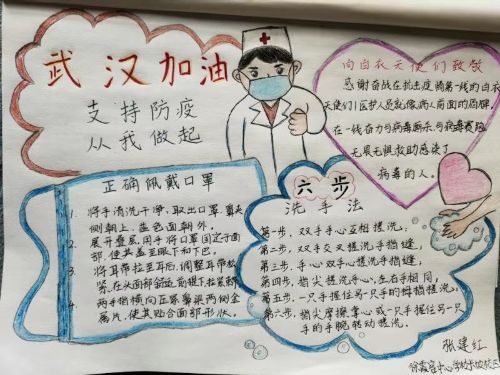 武汉加油
支持防疫
从我做起
向白衣天使们致敬
感谢奋战在抗击疫情第一线的白衣
天使们！医护人员就像病人前面的盾牌，
在一线奋力与病毒厮杀，与病毒赛跑
无畏无惧救助感染了
病毒的人。
正确佩戴口罩
1. 将手清洗干净，取出口罩，鼻夹
侧朝上，蓝色面朝外。
2. 展开叠层，用手将口罩固定于面
部，使其盖至眼下和下巴。
3. 将耳带拉至耳后，调整耳带松
紧，在头面部
4. 两手指横向正压鼻梁两侧金
属片，使其贴合面部形状。
六步
洗手法
第一步，双手手心互相搓洗。
第二步，双手交叉搓洗手指缝。
第三步，手心双手心搓洗手指缝。
第四步，指尖搓洗手心，左右手相同。
第五步，一只手握住另一只手的拇指搓洗。
第六步，指尖摩擦掌心或一只手握另一只
手的手腕转动搓洗。
张建红
徐霞客中心学校